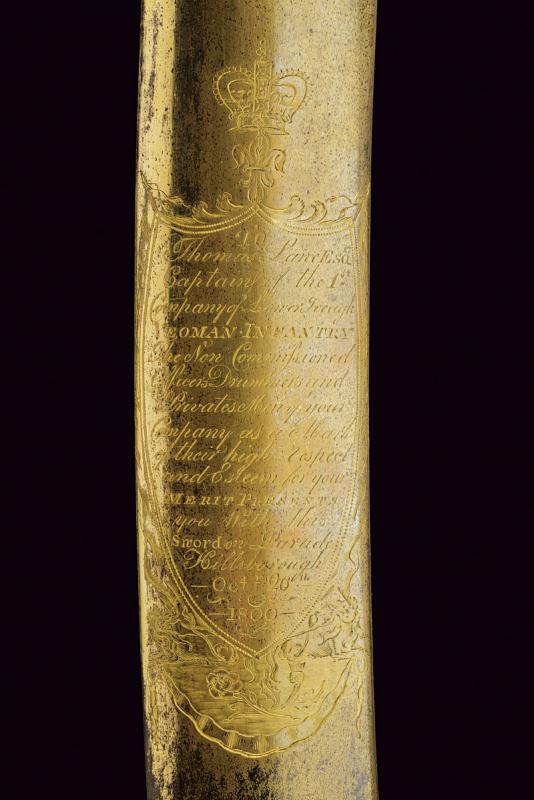 TO
Thomas Lane Esq.
Captain of the 1st
Company of Lower Iveagh
YEOMAN INFANTRY
The Non Commissioned
Officers Drummers and
Privates Men of your
Company as a Mark
of their high Respect
and Esteem for your
MERIT PRESENTS
you With this
Sword on Parade
Hillsborough
— Oct. 20th
— 1800 —